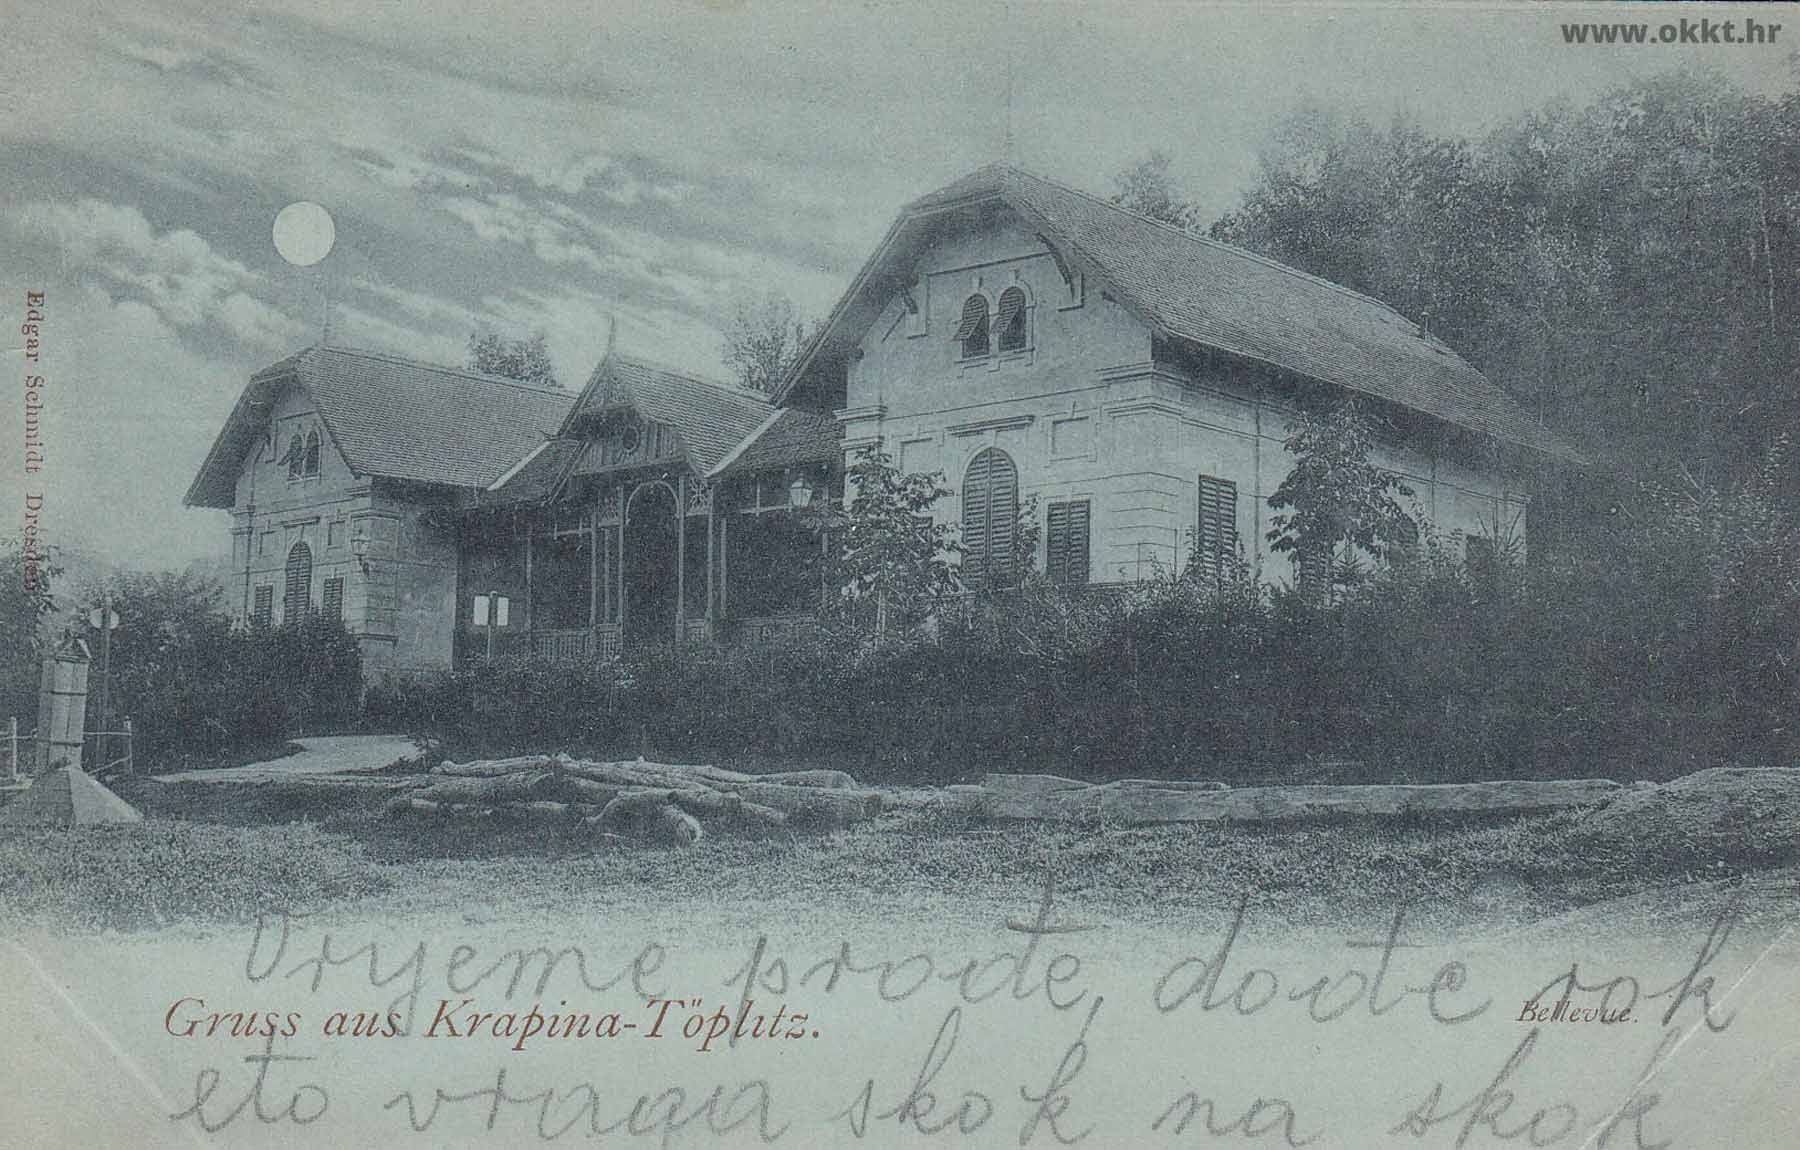 www.okkt.hr
Edgar Schmidt Dresden
Vrijeme prođe, dođe rok
Gruss aus Krapina-Töplitz.
Bellevue.
eto vraga skok na skok